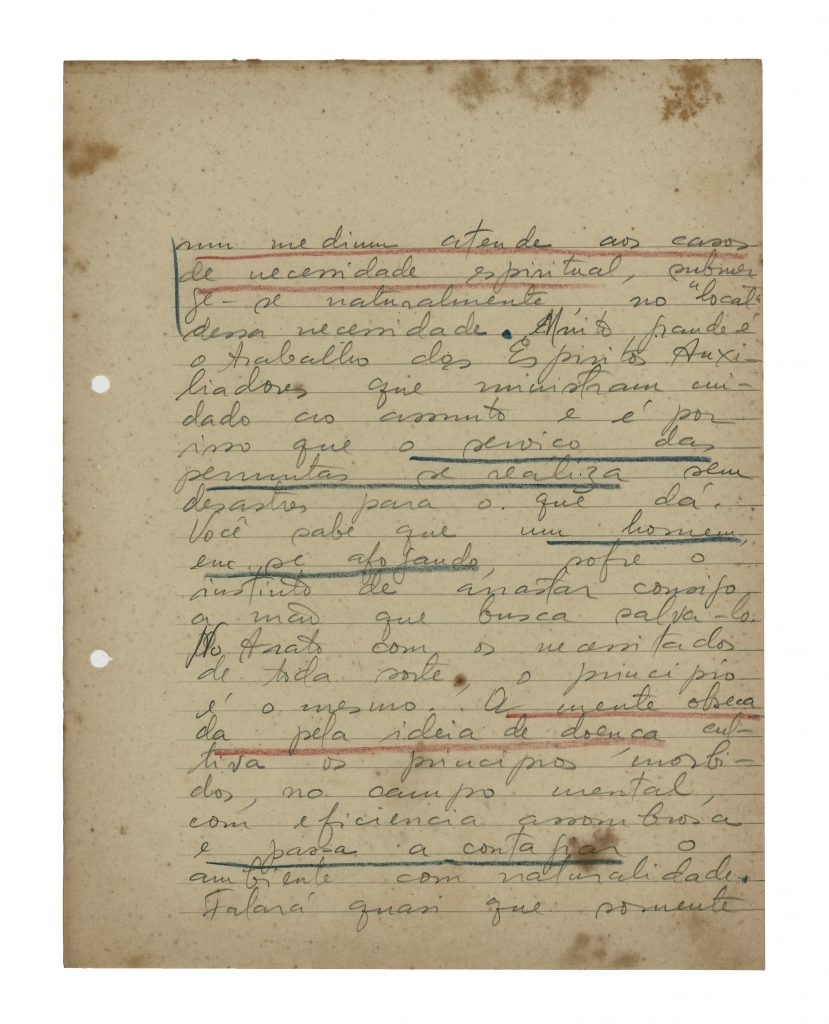 num medium atende aos casos
de necessidade espiritual, submer
ge-se naturalmente no "local"
dessa necessidade. Muito grande é
o trabalho dos Espiritos Auxi-
liadores que ministram cui-
dado ao assunto e é por
isso que o serviço das
permutas se realiza sem
desastres para o que dá.
Você sabe que um homem,
em se afogando, sofre o
instinto de arrastar consigo
a mão que busca salva-lo.
No trato com os necessitados
de toda sorte, o principio
é o mesmo. A mente obseca
da pela ideia de doença cul-
tiva os principios morbi-
dos, no campo mental,
com eficiencia assombrosa
e passa a contagiar o
ambiente com naturalidade.
Falará quasi que somente